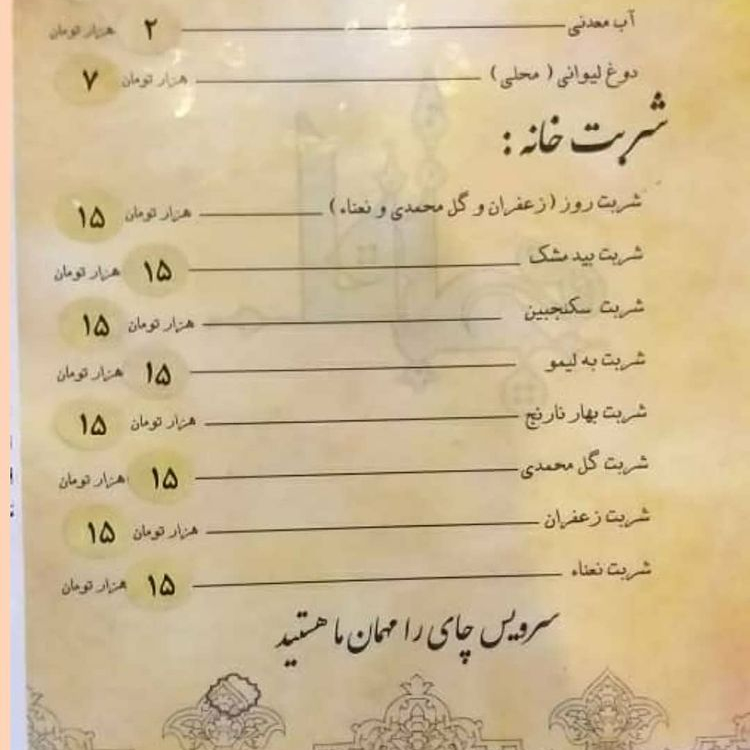 آب معدنی ۲ هزار تومان
دوغ لیوانی ( محلی ) ۷ هزار تومان
شربت خانه :
شربت روز ( زعفران و گل محمدی و نعناء ) ۱۵ هزار تومان
شربت بید مشک ۱۵ هزار تومان
شربت سکنجبین ۱۵ هزار تومان
شربت به لیمو ۱۵ هزار تومان
شربت بهار نارنج ۱۵ هزار تومان
شربت گل محمدی ۱۵ هزار تومان
شربت زعفران ۱۵ هزار تومان
شربت نعناء ۱۵ هزار تومان
سرویس چای را مهمان ما هستید